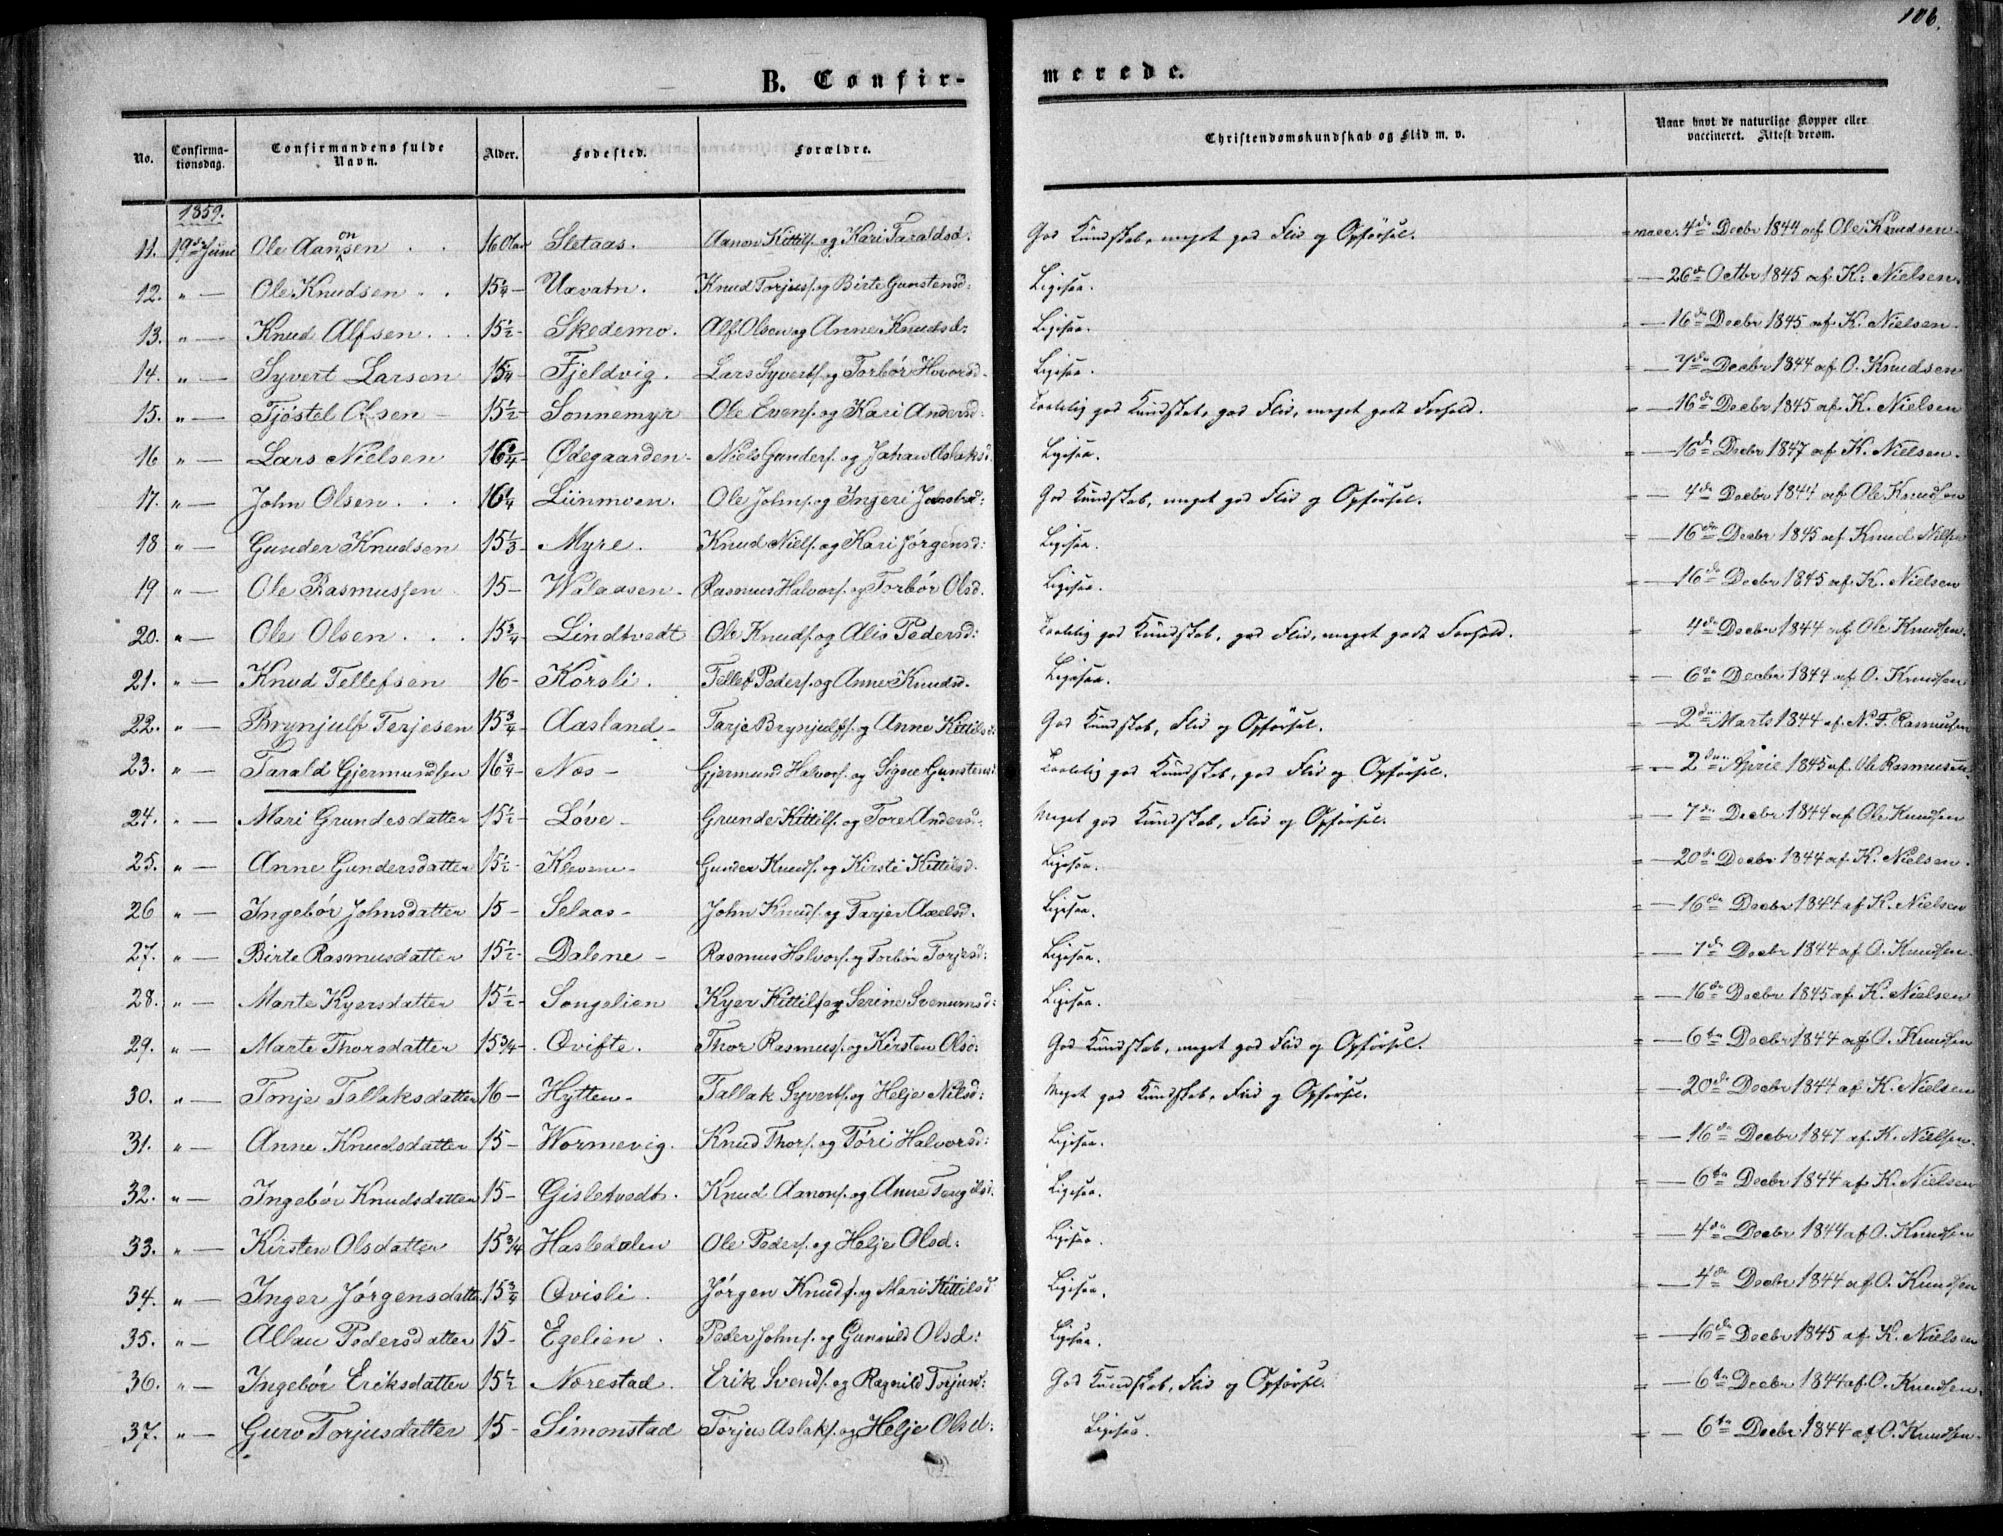 106.
B. Confirmerede.
No. Confirmationsdag. Confirmandens fulde Navn. Alder. Fødested. Forældre. Christendomskundskab og Flid m. v. Naar havt de naturlige Kopper eller vaccineret. Attest derom.
1859.
11. 19de Juni Ole Aanonsen 16 Sletaas. Aanon Kittils. og Kari Taraldsd. God Kundskab, meget god Flid og Opførsel. vacc. 4de Decbr 1844 af Ole Knudsen.
12. " — Ole Knudsen 15¼ - Uxvatn. Knud Torjus. og Birte Gunstensd: Ligesaa. — 26de Octbr 1845 af K. Nielsen.
13. " — Knud Alfsen 15½ - Skedemo. Alf Olsen og Anne Knudsd: Ligesaa. — 16de Decbr 1845 af K. Nielsen.
14. " — Syvert Larsen 15¼ - Fjeldvig. Lars Syverts. og Torbør Hovorsd. Ligesaa. — 7de Decbr 1844 af O. Knudsen
15. " — Tjøstel Olsen 15½ - Sonnemyr Ole Evens. og Kari Andersd: Taalelig god Kundskab, god Flid, meget godt Forhold. — 16de Decbr 1845 af K. Nielsen
16 " — Lars Nielsen 16¼ - Ødegaarden - Niels Gunders. og Johan Aslaksd. Ligesaa. — 16de Decbr 1847 af K. Nielsen.
17. " — John Olsen 16¼ Liinmoen. Ole Johns. og Ingeri God Kundskab, meget god Flid og Opførsel. — 4de Decbr 1844 af Ole Knudsen
18 " — Gunder Knudsen 15⅓ - Myre. Knud Niels. og Kari Jørgensd: Ligesaa. — 16de Decbr 1845 af Knud Nilsen
19 " — Ole Rasmussen 15 - Walaasen - Rasmus Halvors. og Torbør Olsd. Ligesaa. — 16de Decbr 1845 af K. Nielsen
20. " — Ole Olsen 15¾ Lindtvedt Ole Knuds. og Alis Pedersd: Taalelig god Kundskab, god Flid, meget godt Forhold. 4de Decbr 1844 af Ole Knudsen.
21. " — Knud Tellefsen 16 - Korsli. Tellef Peders. og Anne Knudsd. Ligesaa. — 6te Decbr 1844 af O. Knudsen
22. " — Brynjulf Terjesen 15¾ - Aasland - Tarje Brynjulfs. og Anne Kittilsd: God Kundskab, Flid og Opførsel. — 2den Marts 1844 af N. F. Rasmusen
23. " — Tarald Gjermundsen 16¾ - Næs - Gjermund Halvors. og Signe Gunstensd. Taalelig god Kundskab, god Flid og Opførsel. — 2den April 1845 af Ole Rasmusen.
24. " — Mari Grundesdatter 15½ - Løve - Grunde Kittils. og Tore Andersd: Meget god Kundskab, Flid og Opførsel. — 7de Decbr 1844 af Ole Knudsen
25. " — Anne Gundersdatter 15½ - Klevene - Gunder Knuds. og Kirsti Kittilsd. Ligesaa. — 20de Decbr 1844 af K. Nielsen.
26 " — Ingebør Johnsdatter 15 - Selaas - John Knuds. og Tarjer Axelsd. Ligesaa. — 16de Decbr 1844 af K. Nielsen
27. " — Birte Rasmusdatter 15½ - Dalene - Rasmus Halvors. og Torbør Torjesd: Ligesaa. — 7de Decbr 1844 af O. Knudsen.
28. " — Marte Kyersdatter 15½ - Songelien Kyer Kittils. og Serine Svenumsd: Ligesaa. — 16de Decbr 1845 af K. Nielsen
29. " — Marte Thorsdatter 15¾ - Qvifte. Thor Rasmus. og Kirsten Olsd: God Kundskab, meget god Flid og Opførsel. — 6te Decbr 1844 af O. Knudsen
30. " — Tonje Tallaksdatter 16 - Hytten - Tallak Syverts. og Helje Nilsd: Meget god Kundskab, Flid og Opførsel. — 20de Decbr 1844 af K. Nielsen
31. " — Anne Knudsdatter 15 - Wormevig. Knud Thors. og Tori Halvorsd: Ligesaa. — 16de Decbr 1847 af K. Nielsen.
32. " — Ingebør Knudsdatter 15 - Gisletvedt. Knud Aanons. og Anne Ligesaa. — 6te Decbr 1844 af K. Nielsen
33. " — Kirsten Olsdatter 15¾ Hasledalen Ole Peders. og Helje Olsd: Ligesaa. — 4de Decbr 1844 af O. Knudsen
34. " — Inger Jørgensdatter 15¾ Qvisli. Jørgen Knuds. og Mari Kittilsd Ligesaa. — 4de Decbr 1844 af O. Knudsen
35. " — Allau Pedersdatter 15 - Egelien. Peder Johns. og Gunnild Olsd: Ligesaa. — 16de Decbr 1845 af K. Nielsen
36. " — Ingebør Eriksdatter 15½ Nærestad. Erik Svends. og Ragnild Torjusd: God Kundskab, Flid og Opførsel. — 6te Decbr 1844 af O. Knudsen.
37. " — Guro Torjusdatter 15 - Simonstad Torjus Aslaks. og Helje Olsd: Ligesaa. — 6te Decbr 1844 af O. Knudsen.